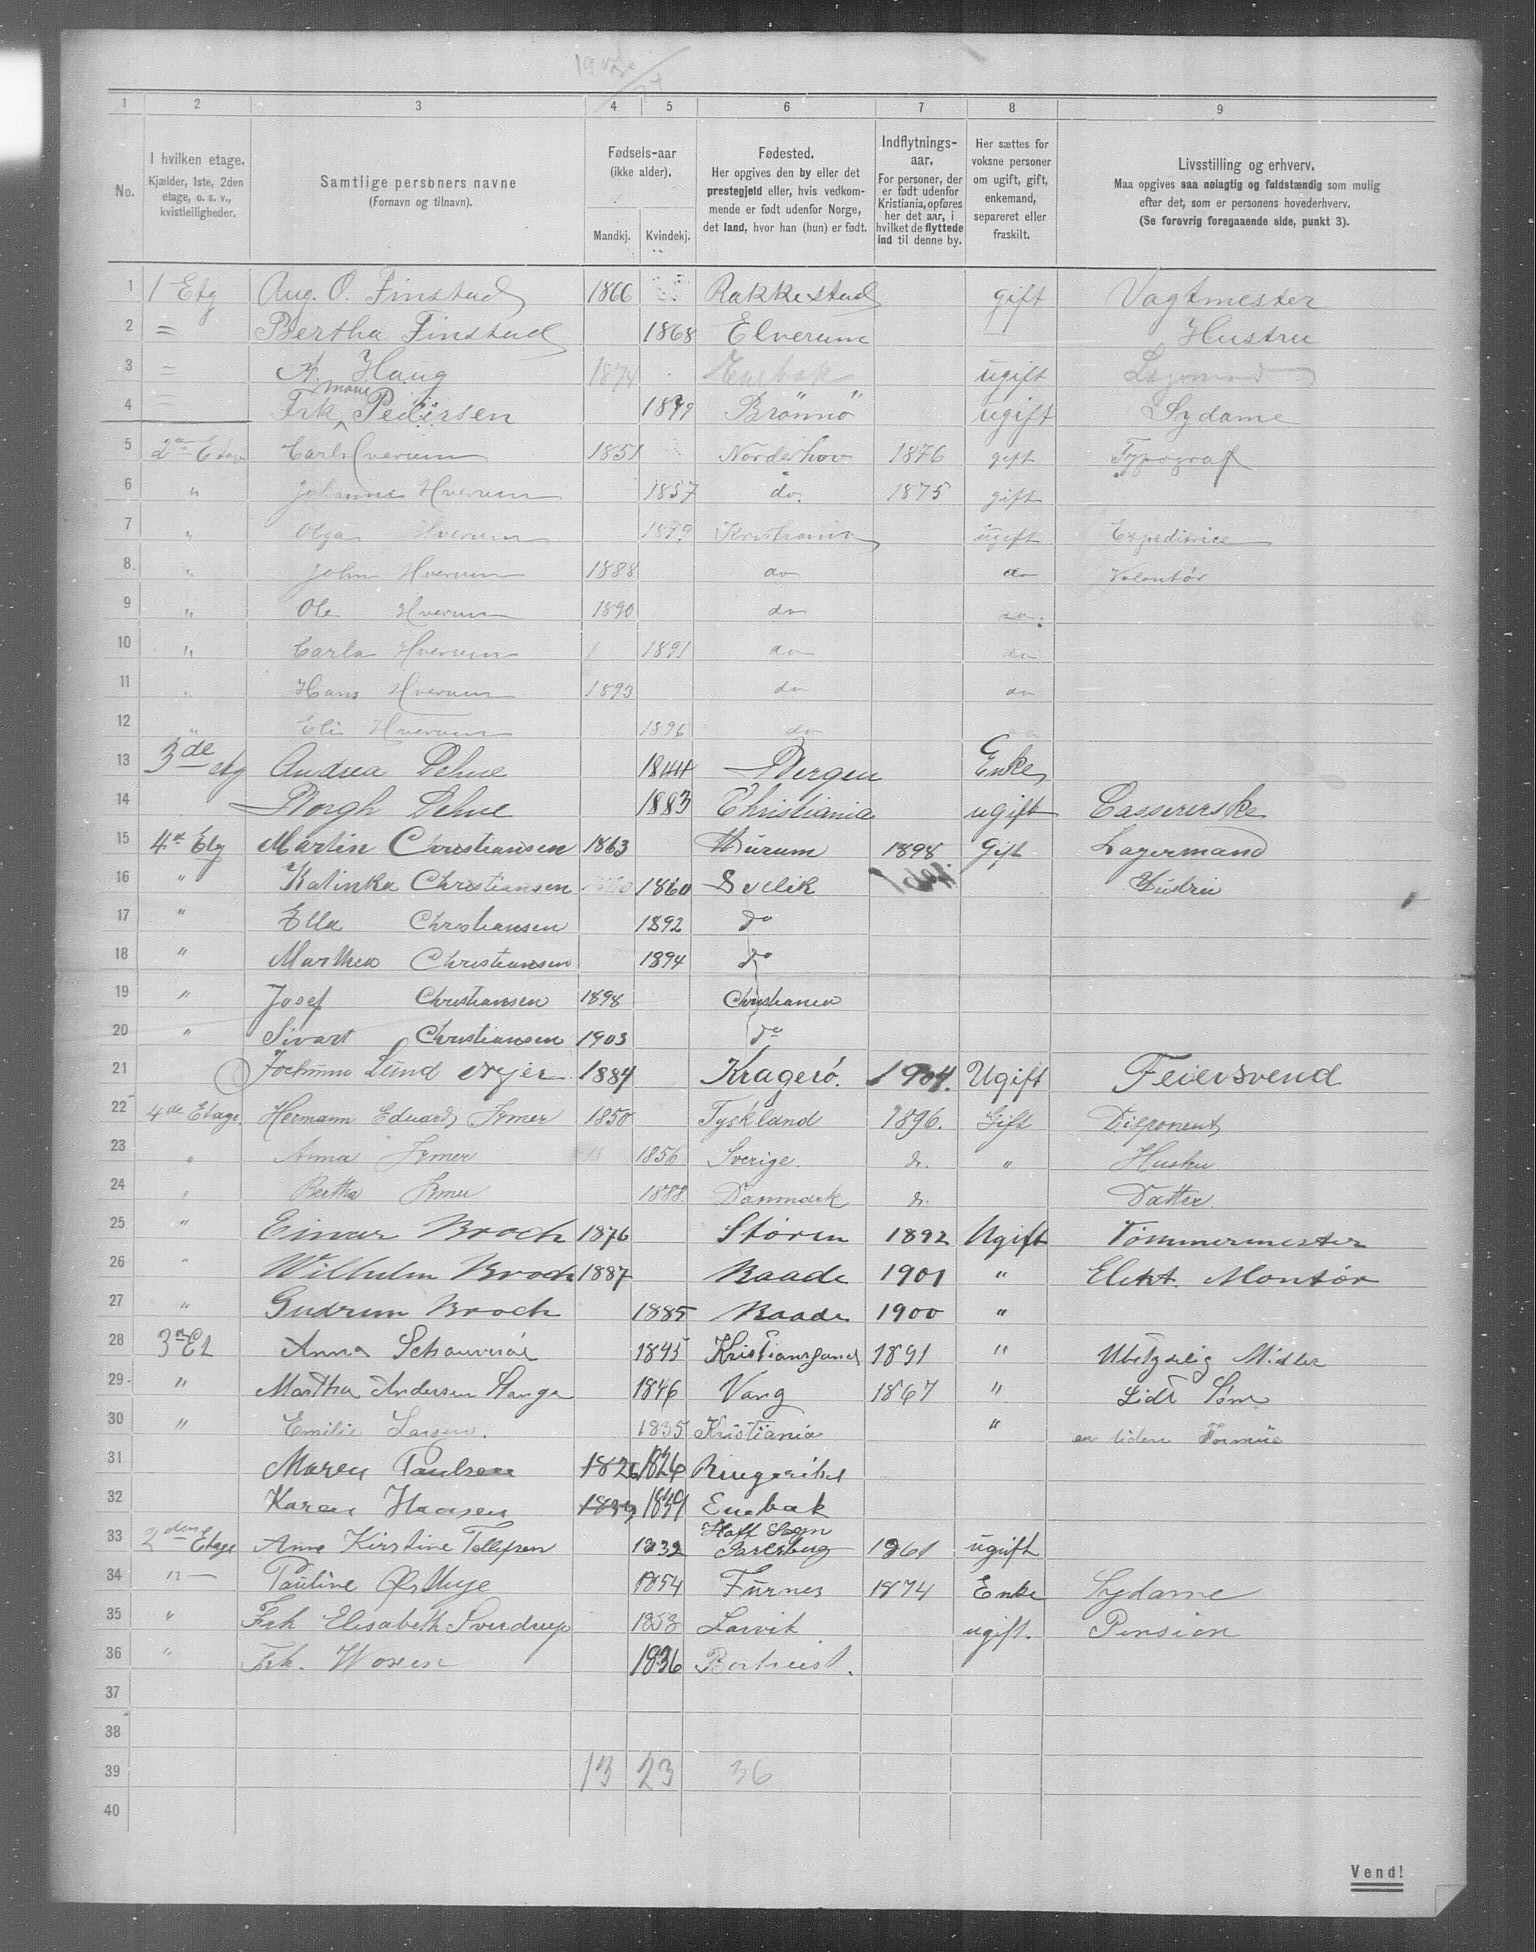 1 2 3 4 5 6 7 8 9
No.
I hvilken etage.
Kjælder, 1ste, 2den
etage, o. s. v.,
kvistleiligheder.
Samtlige personers navne
(Fornavn og tilnavn).
Fødsels-aar
(ikke alder).
Mandkj. Kvindekj.
Fødested.
Her opgives den by eller det
prestegjeld eller, hvis vedkom-
mende er født udenfor Norge,
det land, hvor han (hun) er født.
Indflytnings-
aar.
For personer, der
er født udenfor
Kristiania, opføres
her det aar, i
hvilket de flyttede
ind til denne by.
Her sættes for
voksne personer
om ugift, gift,
enkemand,
separeret eller
fraskilt.
Livsstilling og erhverv.
Maa opgives saa nøiagtig og fuldstændig som mulig
efter det, som er personens hovederhverv.
(Se forøvrig foregaaende side, punkt 3).
1 1 Etg Aug. O. Finstad 1866 Rakkestad gift Vagtmester
2 = Bertha Finstad 1868 Elverum Hustru
3 = A. Haug 1874 ugift
4 = Frk Marie Pedersen 1879 Brönnö ugift Sydame
5 2den Etage Carl Hverum 1851 Norderhov 1876 gift Typograf
6 " Johanne Hverum 1857 do. 1875 gift
7 " Olga Hverum 1879 Kristiania ugift Expeditrice
8 " John Hverum 1888 do do Volontør
9 " Ole Hverum 1890 do do.
10 " Carla Hverum 1891 do do
11 " Hans Hverum 1893 do do
12 " Eli Hverum 1896 do
13 3de etg Andrea Dehue 1844 Bergen Enke
14 Borgh Dehue 1883 Christiania ugift Cassererske
15 4de Etg Martin Christiansen 1863 Hurum 1898 Gift Lagermand
16 " Katinka Christiansen 1860 Svelik Hustru
17 " Ella Christiansen 1892 do
18 " Marthea Christiansen 1894 do
19 " Josef Christiansen 1898 Christiania
20 " Sivart Christiansen 1903 do
21 Jochum Lund 1884 Kragerö. 1904. Ugift Feiersvend
22 4de Etage Hermann Eduard Irmer 1850 Tyskland 1896. Gift Disponent
23 " Anna Irmer 1856 Sverige. do. " Hustru
24 " Bertha Irmer 1888 Danmark do. Datter.
25 " Einar Broch 1876 Støren 1892 Ugift Tømmermester
26 " Wilhelm Broch 1887 Raade 1901 " Elekt. Montör
27 " Gudrun Broch 1885 Raade 1900 "
28 3de Et Anna 1845 Kristiansand 1891 " Ubetydelig Midler
29 " Martha Andersen Stange 1846 Vang 1867 " Lidt Søm
30 " Emilie Larsen. 1835 Kristiania " en liden Formue
31 Maren Paulsen 1826 1826 Ringerike
32 Karen Hansen 1839 1839 Enebak
33 2den Etage Anne Kirstine Tollefsen 1832 Hoff Sogn Jarlsberg 1861 ugift
34 " Pauline 1854 Furnes 1874 Enke Sydame
35 " Frk Elisabeth Sverdrup 1853 Larvik ugift. Pension
36 " Frk. 1836
37
38
39 13 23 36
40
Vend!